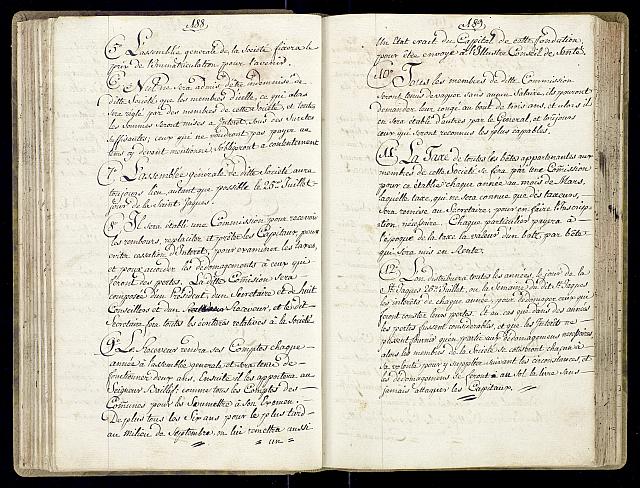 188.
5° L'assemblée generale de la Societé fixera le
prix de l'immatriculation pour l'avenir.
6° Nul ne sera admis d'être indemnisé de
ditte Societé que les membres d'icelle, ce qui alors
sera reglé par des membres de cette Societé, et toutes
les sommes seront mises a Interet, sous des Suretés
suffisantes; ceux qui ne voudront pas payer au
tems cy devant mentionné, s'obligeront à contentement
7° L'assemblée generale de ditte Societé aura
toujours lieu, autant que possible le 25me Juillet
jour de la Saint Jaques.
8° Il sera établi une Commission pour recevoir
les rembours, replacer et prêter les Capitaux pour
eviter cessation d'Interet, pour examiner les tares,
et pour accorder les dédomagements à ceux qui
feront des pertes. La ditte Comission sera
composée d'un President, d'un Secretaire et de huit
Conseillers et d'un Receveur, et le dit
Secretaire fera toutes les ecritures relatives à la Societé
9° Le Receveur rendra ses Comptes chaque
année à l'assemblée generale et sera tenu de
fonctionner deux ans, ensuite il les apportera au
Seigneur Baillif, comme tous les Comptes des
Comunes pour les soumettre à son Examen.
De plus tous les Six ans pour le plus tard
au milieu de Septembre, on lui remettra aussi
un
189.
Un Etat exact du Capital de cette fondation
pour être envoyé à l'Illustre Conseil de Santé.
10° Tous les membres de ditte Commission
seront tenus de vaquer sans aucun Salaire, ils pourront
demander leur congé au bout de trois ans, et alors il
en sera établi d'autres par le General, et toujours
ceux qui seront reconnus les plus capables.
11 La Taxe de toutes les bêtes appartenantes aux
membres de cette Societé se fera par une Comission
pour ce établie chaque année au mois de Mars,
laquelle taxe, qui ne sera connue que des taxeurs,
sera remise au Secretaire pour en faire l'Inscrip
-tion necessaire. Chaque particulier payera à
l'epoque de la taxe la valeur d'un batz, par bête
qui sera mis en Rente.
12° L'on distribuera toutes les années, le jour de la
St Jaques 25me Juillet, ou la Semaine du dit St Jaques
les interets de chaque année, pour dédomager ceux qui
feront conster leurs pertes. Et au cas que dans des années
les pertes fussent considerables, et que les Interets ne
pussent fournir qu'en partie aux dédomagements necessaires
alors les membres de la Societé se cotiseront chacun à
sa volonté pour y suppléer suivant les circonstances, et
les dédomagemens se feront au sol la livre sans
jamais attaquer les Capitaux.